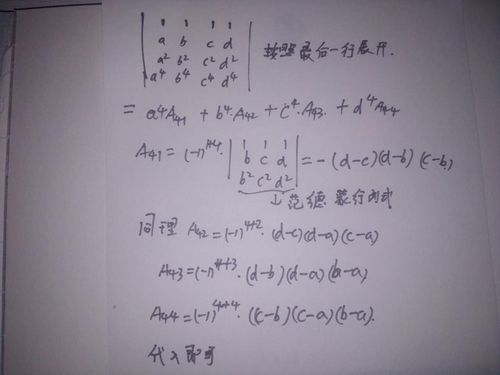 1 1 1 1
a b c d
a² b² c² d²
a⁴ b⁴ c⁴ d⁴ 按照最后一行展开.
= a⁴A₄₁ + b⁴·A₄₂ + C⁴·A₄₃ + d⁴A₄₄
1 1 1
A₄₁ = (-1)¹⁺⁴· | b c d | = -(d-c)(d-b)(c-b)
b² c² d²
↓ 范德蒙行列式
同理 A₄₂ = (-1)⁴⁺²·(d-c)(d-a)(c-a)
A₄₃ = (-1)⁴⁺³·(d-b)(d-a)(b-a)
A₄₄ = (-1)⁴⁺⁴·(c-b)(c-a)(b-a).
代入即可